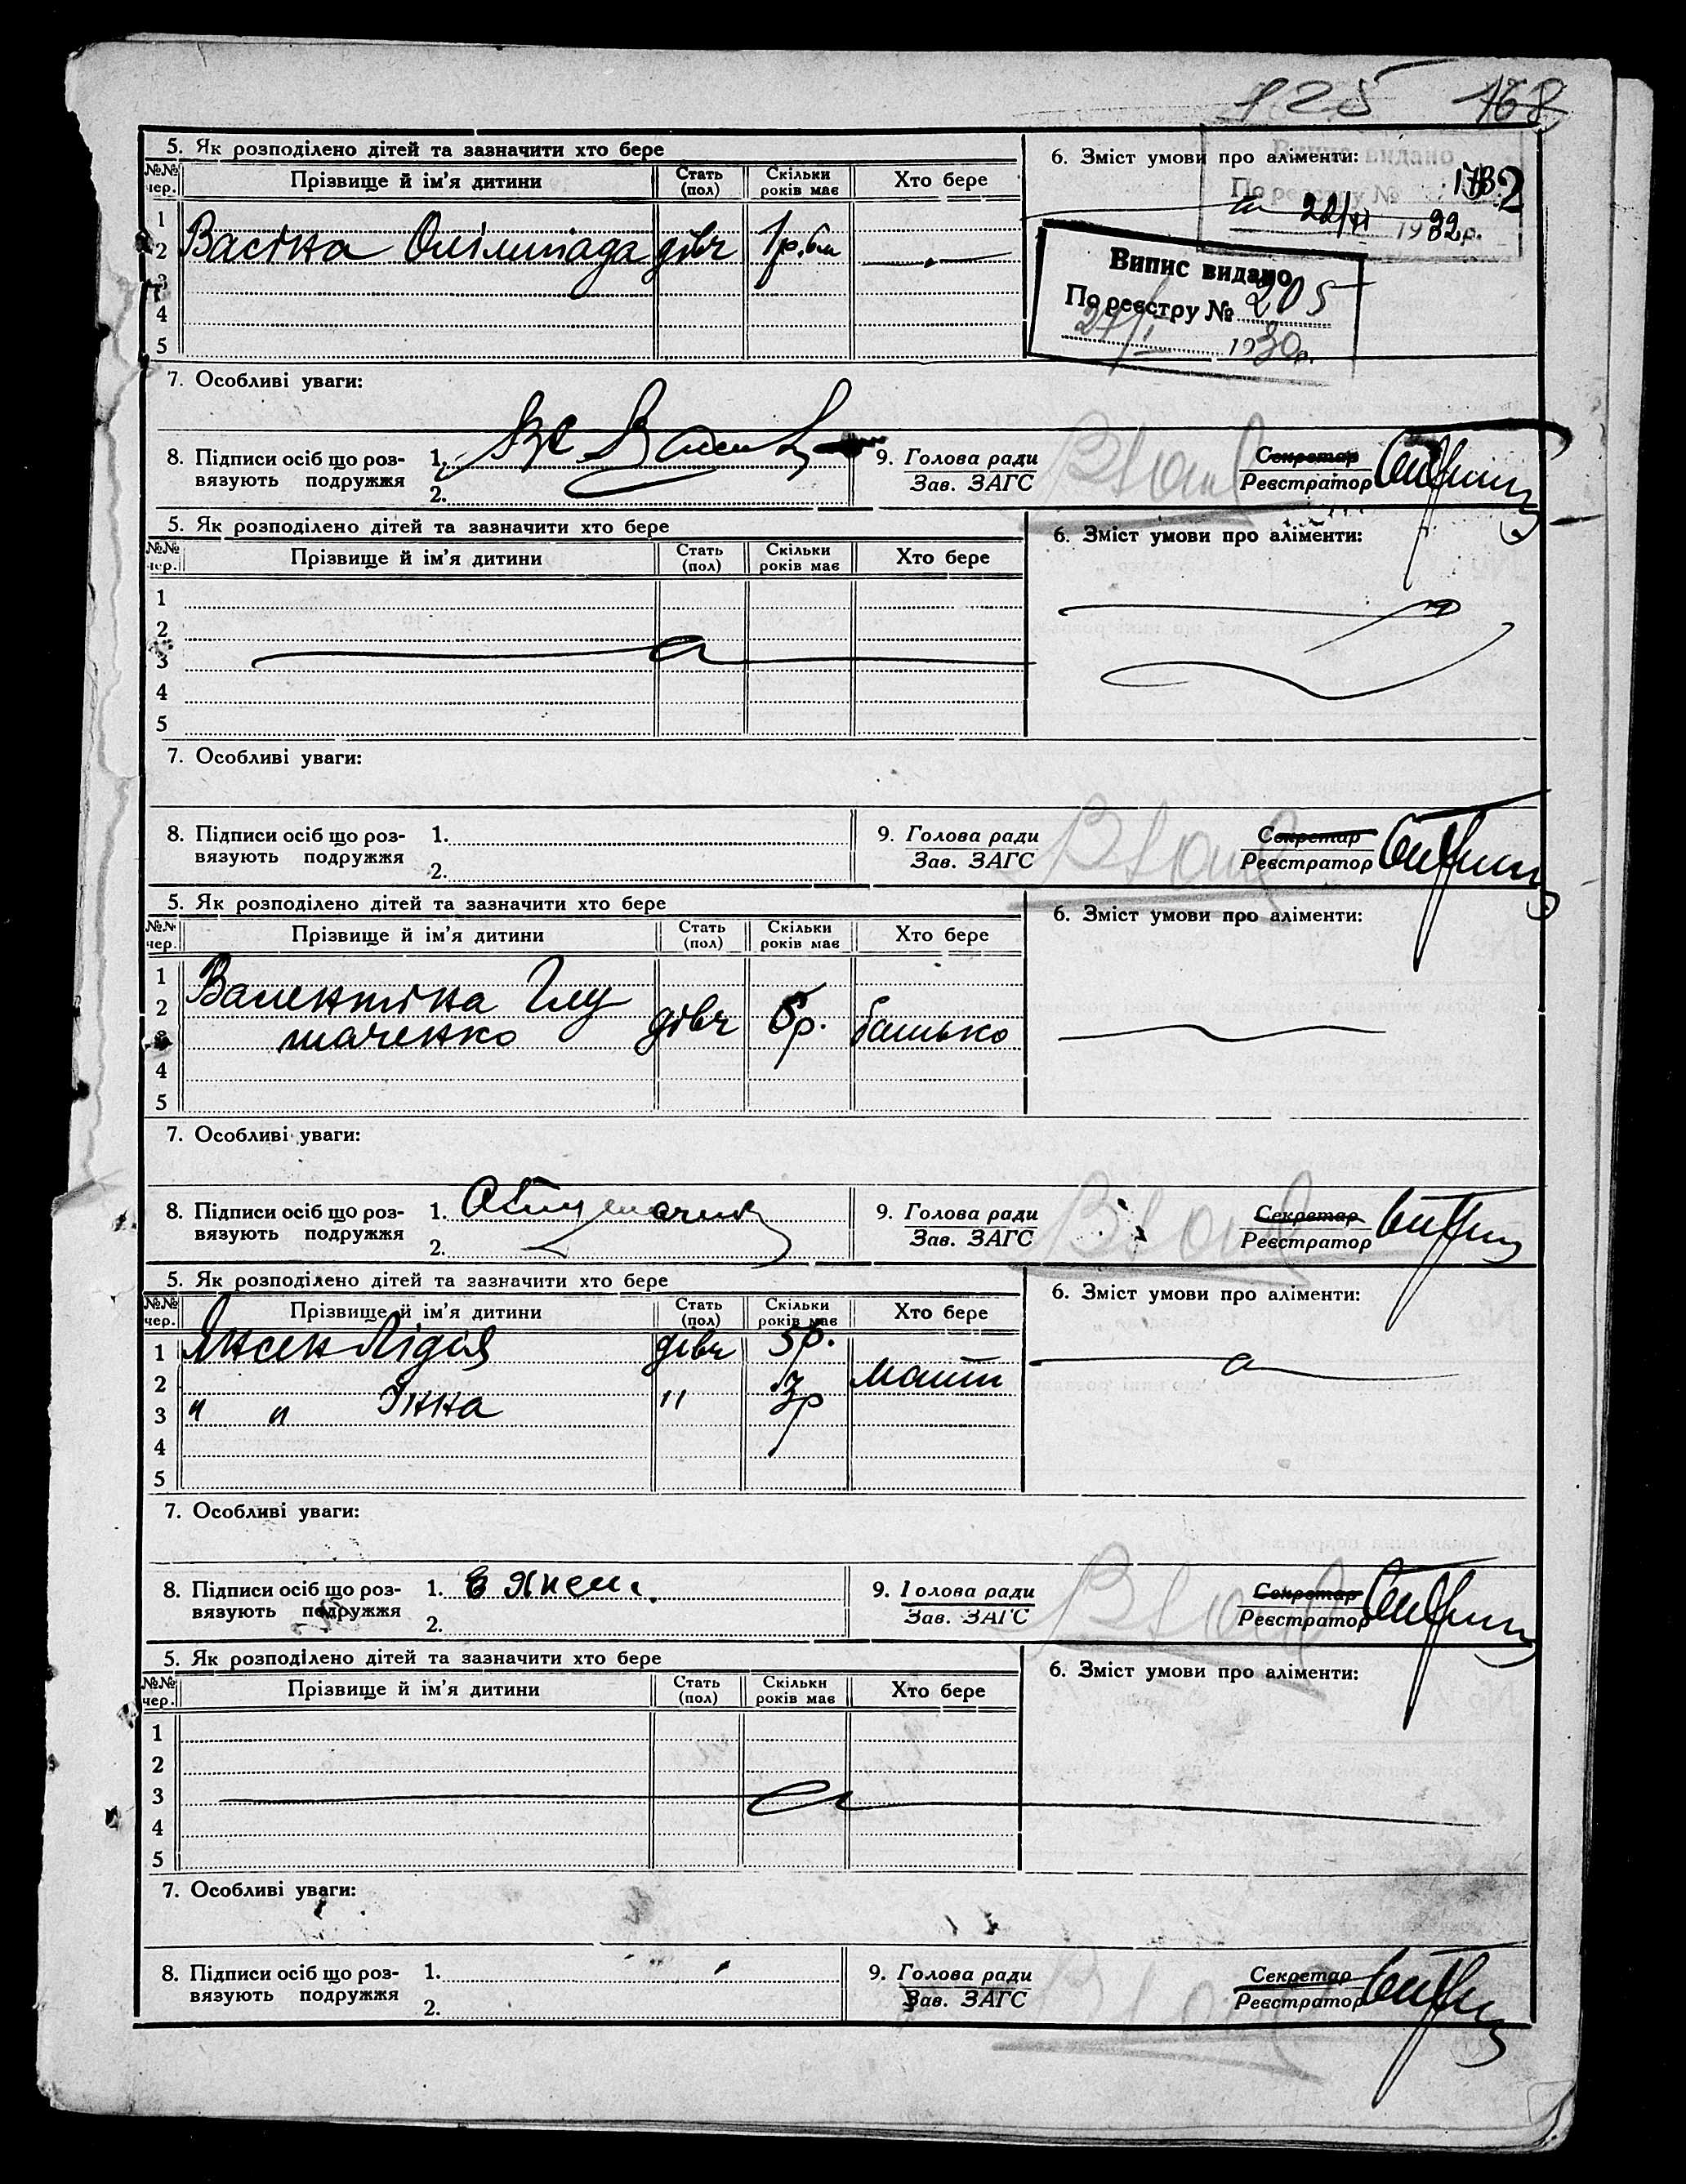 125 168
5. Як розподілено дітей та зазначити хто бере
6. Зміст умови про аліменти:
№№ чер. Прізвище й ім'я дитини Стать (пол) Скільки років має Хто бере
Випис видано
По реєстру №
22/VI 1932р.
1
2 Васіна Олімпіада дівч 1р.6м —
3
4
5
Випис видано
По реєстру № 205
27/I 1930р.
7. Особливі уваги:
8. Підписи осіб що роз-
вязують подружжя
1.
2.
9. Голова ради
Зав. ЗАГС
Секретар
Реєстратор
5. Як розподілено дітей та зазначити хто бере
6. Зміст умови про аліменти:
№№ чер. Прізвище й ім'я дитини Стать (пол) Скільки років має Хто бере
1
2
3
4
5
7. Особливі уваги:
8. Підписи осіб що роз-
вязують подружжя
1.
2.
9. Голова ради
Зав. ЗАГС
Секретар
Реєстратор
5. Як розподілено дітей та зазначити хто бере
6. Зміст умови про аліменти:
№№ чер. Прізвище й ім'я дитини Стать (пол) Скільки років має Хто бере
1
2 Валентіна Глу
3 шаченко дівч 6р. батько
4
5
7. Особливі уваги:
8. Підписи осіб що роз-
вязують подружжя
1.
2.
9. Голова ради
Зав. ЗАГС
Секретар
Реєстратор
5. Як розподілено дітей та зазначити хто бере
6. Зміст умови про аліменти:
№№ чер. Прізвище й ім'я дитини Стать (пол) Скільки років має Хто бере
1 Янсен Лідія дівч 5р.
2 мати
3 " " Інна " 3р
4
5
7. Особливі уваги:
8. Підписи осіб що роз-
вязують подружжя
1. Е Янсен.
2.
9. Голова ради
Зав. ЗАГС
Секретар
Реєстратор
5. Як розподілено дітей та зазначити хто бере
6. Зміст умови про аліменти:
№№ чер. Прізвище й ім'я дитини Стать (пол) Скільки років має Хто бере
1
2
3
4
5
7. Особливі уваги:
8. Підписи осіб що роз-
вязують подружжя
1.
2.
9. Голова ради
Зав. ЗАГС
Секретар
Реєстратор